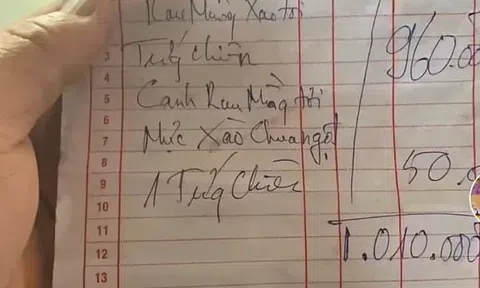 Rau Muống Xào tỏi
3 Trứg chiên 960.00
4
5 Canh Rau Mồng tơi
6
7 Mực Xào Chua ngọt
8
9 1 Trứg Chiên 50.0
10
11
12 1.010.000
13